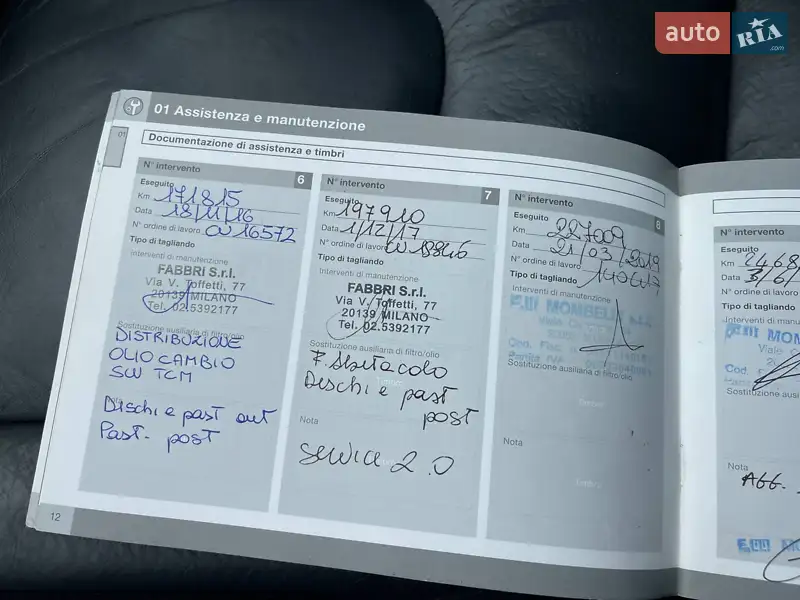 auto RIA .com
01 Assistenza e manutenzione
01
Documentazione di assistenza e timbri
N° intervento 6
Eseguito
Km 171815
Data 18/11/16
N° ordine di lavoro CU16572
Tipo di tagliando
Interventi di manutenzione
FABBRI S.r.l.
Via V. Toffetti, 77
20139 MILANO
Tel. 02.5392177
Sostituzione ausiliaria di filtro/olio
DISTRIBUZIONE
OLIO CAMBIO
SW TCM
Dischi e past ant
Past. post
12
N° intervento 7
Eseguito
Km 197910
Data 1/12/17
N° ordine di lavoro
Tipo di tagliando
Interventi di manutenzione
FABBRI S.r.l.
Via V. Toffetti, 77
20139 MILANO
Tel. 02.5392177
Sostituzione ausiliaria di filtro/olio
Dischi e past
post
Nota
Service 2.0
N° intervento 8
Eseguito
Km 227009
Data 21/03/2019
N° ordine di lavoro
Tipo di tagliando
Interventi di manutenzione
F.lli
Sostituzione ausiliaria di filtro/olio
Nota
N° intervento
Eseguito
Km 2468
Data
N° ordine di lavoro
Tipo di tagliando
Interventi di manutenzione
Viale
Cod.
Sostituzione
Nota
AGG.